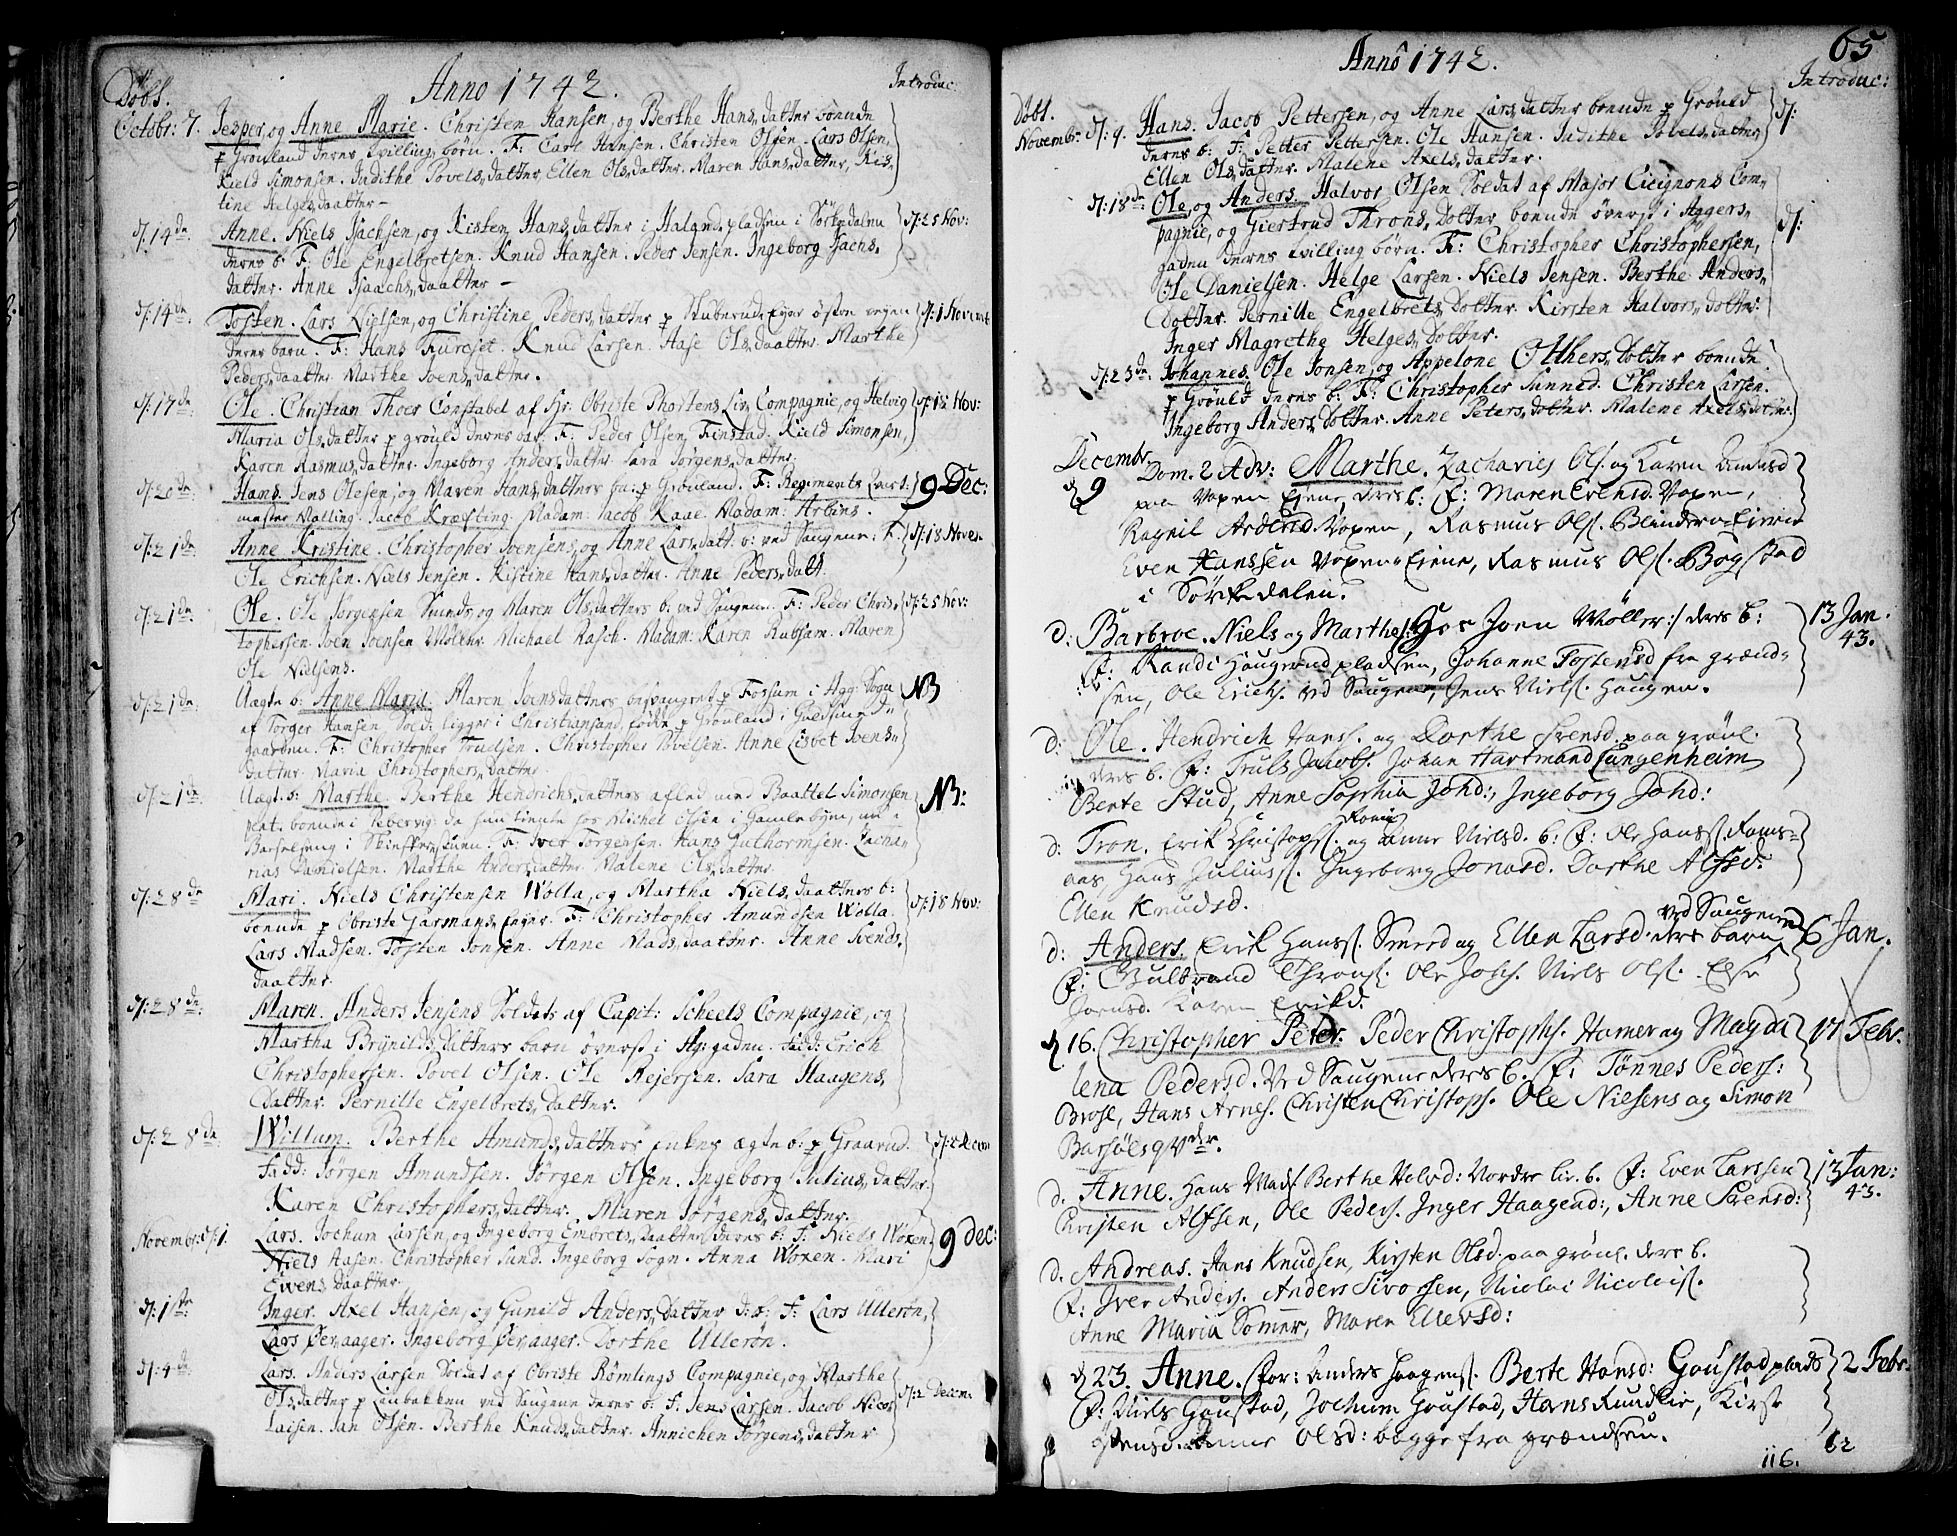 Anno 1742.
Döbt.
Introduc:
Octobr: 7. Jesper, og Anne Marie. Christen Hansen, og Berthe Hans,datter boende
p Grønland deres tvilling,børn. F: Carl Hansen. Christen Olsen. Lars Olsen.
Kield Simonsen. Judithe Povels,datter. Ellen Ols,datter. Maren Hans,datter, Kis,
tine Helges,daatter –
d: 14de Anne. Niels Jsachsen, og Kisten Hans,datter i pladsen i Sørkedalen d: 25 Nov:
deres b: F: Ole Engelbretsen. Knud Hansen. Peder Jensen. Ingeborg Jsachs,
datter. Anne Jsaachs,daatter –
d: 14de Tosten. Lars Nielsen, og Christine Peders,datter p Stuberud Ejer østen vejen d: 1 Novemb
deres barn. F: Hans Fureset. Knud Larsen. Aase Ols,daatter. Marthe
Peders,daatter. Marthe Joens,datter.
d: 17de Ole. Christian Thoer Constabel af Hr: Obriste Mortens Liv Compagnie, og Helvig d: 18 Nov:
Maria Ols,datter p grønld deres bar. F: Peder Olsen Finstad. Kield Simonsen,
Karen Rasmus,datter. Ingeborg Anders,datter. Sara Jørgens,datter.
d: 20de Hans. Jens Olesen, og Maren Hans,datters ba: p Grønland. F: Regiments Qvart: 9 Dec:
mester Malling. Jacob Kræfting. Madam: Jacob Kaae. Madam: Arbins.
d: 21de Anne Kristine. Christopher Joensens, og Anne Lars,datt: b: ved Saugene: F: d: 18 Novem
Ole Erichsen. Niels Jensen. Kistine Hans,datter. Anne Peders,datt.
d: 21de Ole. Ole Jørgensen Smeds, og Maren Ols,datters b: ved Saugene. F: Peder Chris, d: 25 Nov:
tophersen. Joen Joensen Møller. Michael Rasch. Madam: Karen Rubsam. Maren
Ole Nielsens.
d: 21de Uægte b: Anne Maria. Maren Joensdatters besvangret p Fossum i Agg: Sogn NB
af Torger Hansen Sold: ligger i Christiansand, fødde p Grønland i Guldsmed
gaarden. F: Christopher Truelsen. Christopher Povelsen. Anne Lisbet Svends
datter. Maria Christophers,datter.
d: 21de Uægt: b: Marthe. Berthe Hendrichs,datters afled med Baattel Simonsen NB:
boende i Pebervig: da hun tiente for Michel Olsen i Gamlebyen, nu i
Barselseng i F: Iver Torgersen. Hans Guthormsen. Zacha
rias Danielsen. Marthe Anders,datter. Malene Ols,datter.
d: 28de Mari. Niels Christensen Wolla, og Martha Niels,daatters b: d: 18 Nov:
boende p Obriste Garmans Eyer. F: Christopher Amundsen Wolla.
Lars Madsen. Tosten Jonsen. Anne Mads,daatter. Anne Svends,
daatter.
d: 28de Maren. Anders Jensens Soldats af Capit: Scheels Compagnie, og
Martha Brynilds,datters barn øverst i Ag:gaden. Fadd: Erich
Christophersen. Povel Olsen. Ole Rejersen. Sara Haagens,
datter. Pernille Engelbrets,datter.
d: 28de Willum. Berthe Amunds,datters Enkes ægte b: p Graarud. d: 2 Decem
Fadd: Jørgen Amundsen. Jørgen Olsen. Ingeborg Julius,datter.
Karen Christophers,datter. Maren Jørgens,datter.
Novembr: d: 1. Lars. Jochum Larsen, og Ingeborg Embrets,daatter deres b: F: Niels Woxen. 9 Dec:
Niels Aasen. Christopher Sund. Ingeborg Sogn. Anna Woxen. Mari
Ewens,daatter.
d: 1de Inger. Axel Hansen, og Gunild Anders,datter d: b: F: Lars Ulleren,
Lars Persaager. Ingeborg Persaager. Dorthe Ulleren.
d: 4de Lars. Anders Larsen Soldat af Obriste Rømlings Compagnie, og Marthe
Ols,datter p Linbakken ved Saugene deres b: F: Jens Larsen. Jacob Nico d: 2 Decem:
laisen. Jan Olsen. Berthe Knuds,datter. Annichen Jørgens,datter
Anno 1742.
65
Döbt.
Introduc:
Novembr: d: 4. Hans. Jacob Pettersen, og Anne Lars,datter boende p Grønld d:
deres b: F: Petter Pettersen. Ole Hansen. Judithe Povels,datter
Ellen Ols,datter. Malene Axels,datter.
d: 18de: Ole, og Anders. Halvor Olsen Soldat af Major Cicignons Com,
pagnie, og Giertrud Throns,dotter boende øverst i Aggers, d:
gaden deres tvilling børn. F: Christopher Christophersen,
Ole Danielsen. Helge Larsen. Niels Jensen. Berthe Anders,
Dotter. Pernille Engelbrets,Dotter. Kirsten Halvors,dotter:
Inger Magrethe Helges,Dotter.
d: 25de Johannes. Ole Jonsen, og Appelone Otthers,Dotter boende
p Grønld deres b: F: Christopher Sinned. Christen Larsen.
Ingeborg Anders,Dotter. Anne Peters,dotter. Malene Axels,dotter.
Decembr
d 9 Dom. 2 Adv: Marthe. Zacharies Ols. og Karen Amundsd
paa Voxen Ejene, deres b: F: Maren Evensd. Voxen,
Ragnil Voxen, Rasmus Ols. Blindern Eierne
Even Hanssen Voxen Eiene, Rasmus Ols. Bogstad
i Sørkedalen.
d: Barbroe. Niels og Marthe /: Hos Joen Møller :/ deres b: 13 Jan.
43.
F: Randi Haugen pladsen, Johanne Tostensd fra grænd,
sen, Ole Erichs. ved Saugene, Jens Niels. Haugen.
d: Ole. Hendrich Hans. og Dorthe Svensd. paa grönl.
deres b. F: Truls Jacobs. Johan Hartmand Langenheim
Berte Stud, Anne Sophia Johd:, Ingeborg Johd:
d: Tron. Erik Christoph. og Anne Nielsd. b: F: Ole Hanss. Roms=
aas Hans Juliuss. Ingeborg Jonasd. Dorthe Alfsd.
Ellen Knudsd.
ved Saugene
d: Anders. Erik Hanss. Smed og Ellen Larsd. deres barn 6 Jan.
F: Gulbrand Throns. Ole Johs. Niels Ols. Else
Joensd. Karen Erichd.
d 16. Christopher Peter. Peder Christophs. Hamer og Magda 17 Febr.
lena Pedersd. Ved Saugene deres b. F: Tønnes Peders:
Brose, Hans Arnes. Christen Christoph. Ole Nielsens og Simon
Barsøls qvder.
d. Anne. Hans Mads Berthe Nelsd: Nordre lie. b. F: Even Larssen 13 Jan:
43.
Christen Alfsen, Ole Peders. Inger Haagend:, Anne Svensd:
d. Andreas. Hans Knudsen, Kirsten Olsd. paa grönl. deres b.
F: Jver Anders. Anders Sivorsen, Nicolai Nicolais.
Anne Maria Sommer, Maren Ellevsd:
d 23. Anne. For: Anders Haagens. Berte Hansd: Goustad plads 2 Febr.
F: Niels Goustad, Jochum Goustad, Hans Rundlie, Kirst
Anne Olsd: begge fra grændsen.
116. 62